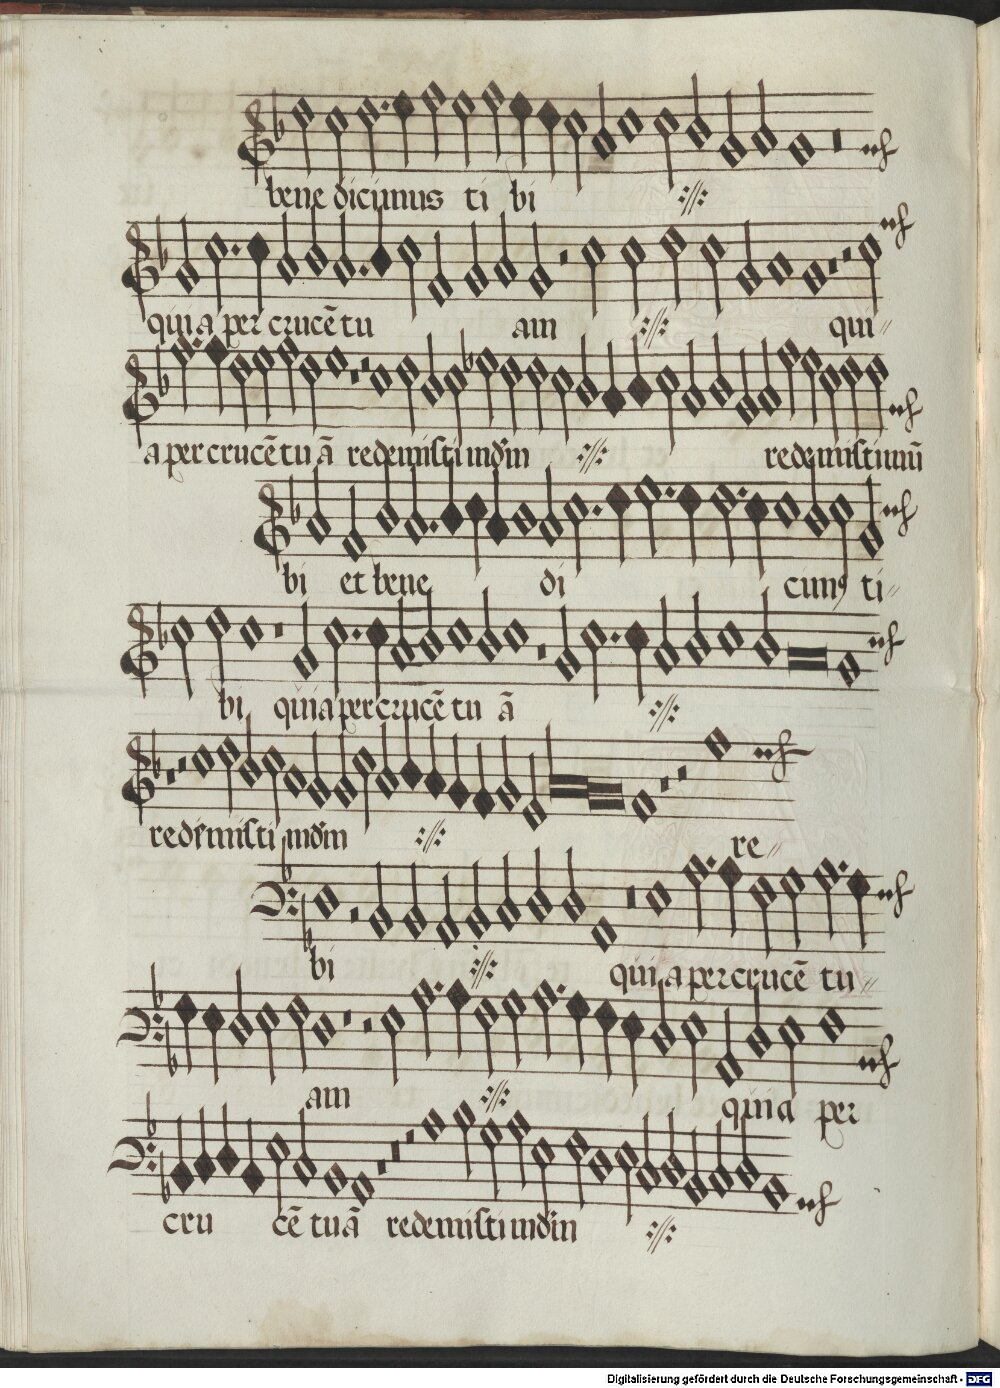 bene dicimus ti bi
quia per crucē tu am qui
a per crucē tu ā redemisti mdm redemisti mū
bi et bene di cimꝰ ti
bi quia per crucē tu ā
redemisti mdm re
bi quia per crucē tu
am quia per
cru cē tuā redemisti mdm
Digitalisierung gefördert durch die Deutsche Forschungsgemeinschaft - DFG